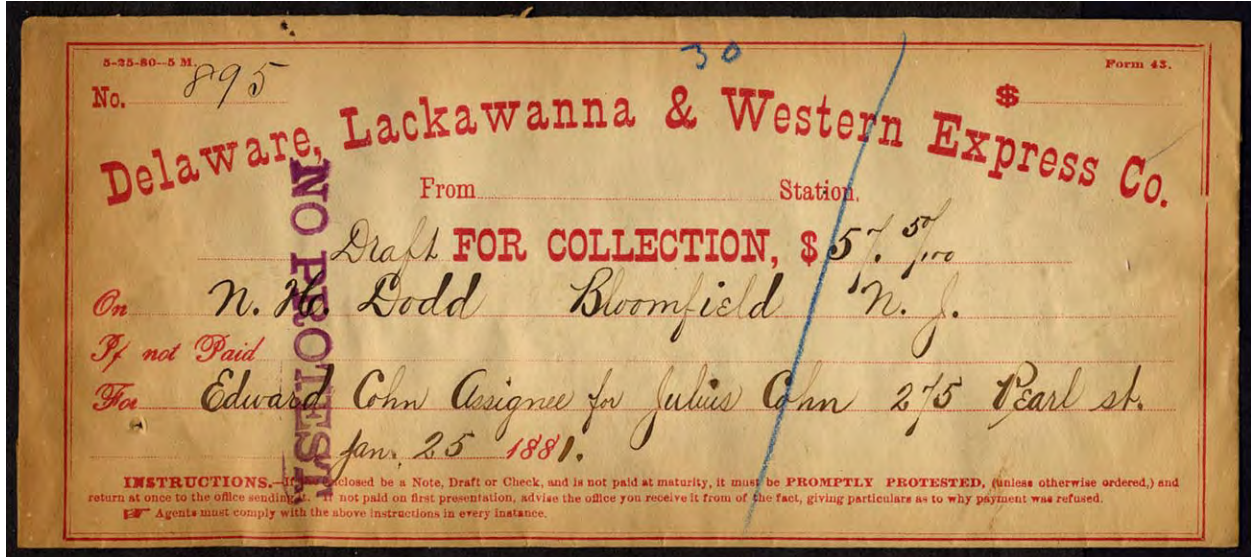 5-25-80--5 M.
30
Form 43.
No. 895
$
Delaware, Lackawanna & Western Express Co.
From Station.
NO PROTEST.
Draft FOR COLLECTION, $ 57. 50/100
On N. H. Dodd Bloomfield N. J.
If not Paid
For Edward Cohn Assignee for Julius Cohn 275 Pearl st.
Jan. 25 1881.
INSTRUCTIONS.—If the enclosed be a Note, Draft or Check, and is not paid at maturity, it must be PROMPTLY PROTESTED, (unless otherwise ordered,) and
return at once to the office sending it. If not paid on first presentation, advise the office you receive it from of the fact, giving particulars as to why payment was refused.
☞ Agents must comply with the above instructions in every instance.